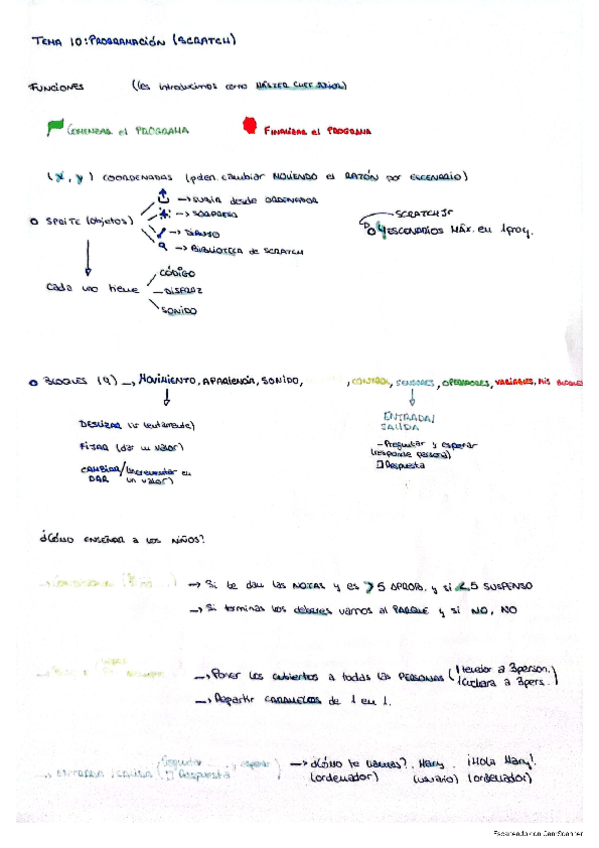 TEMA 10: PROGRAMACIÓN (SCRATCH)
FUNCIONES (les introducimos como MÁSTER CHEF JUNIOR)
COMENZAR el PROGRAMA FINALIZAR el PROGRAMA
(x, y) COORDENADAS (pden. cambiar MOVIENDO el RATÓN por ESCENARIO)
SPRITE (objetos)
→ SUBIR desde ORDENADOR
→ SORPRESA
→ DIBUJO
→ BIBLIOTECA de SCRATCH
SCRATCH Jr
4 ESCENARIOS MÁX. en 1 prog.
Cada uno tiene
CÓDIGO
DISFRAZ
SONIDO
BLOQUES (9) → MOVIMIENTO, APARIENCIA, SONIDO, , CONTROL, SENSORES, OPERADORES, VARIABLES, MIS BLOQUES
DESLIZAR (ir lentamente)
FIJAR (dar un valor)
CAMBIAR/DAR (incrementar en un valor)
ENTRADA/
SALIDA
- Preguntar y esperar
(responde persona)
Respuesta
¿CÓMO ENSEÑAR A LOS NIÑOS?
→ Si te dan las NOTAS y es > 5 APROB. y si < 5 SUSPENSO
→ Si terminas los deberes vamos al PARQUE y si NO, NO
→ Poner los cubiertos a todas las PERSONAS (1 tenedor a 3 person. 1 cuchara a 3 pers.)
→ Repartir CARAMELOS de 1 en 1.
→ ENTRADA / SALIDA ( y esperar Respuesta) → ¿Cómo te llamas? Mary ¡Hola Mary!
(ordenador) (usuario) (ordenador)
Escaneado con CamScanner